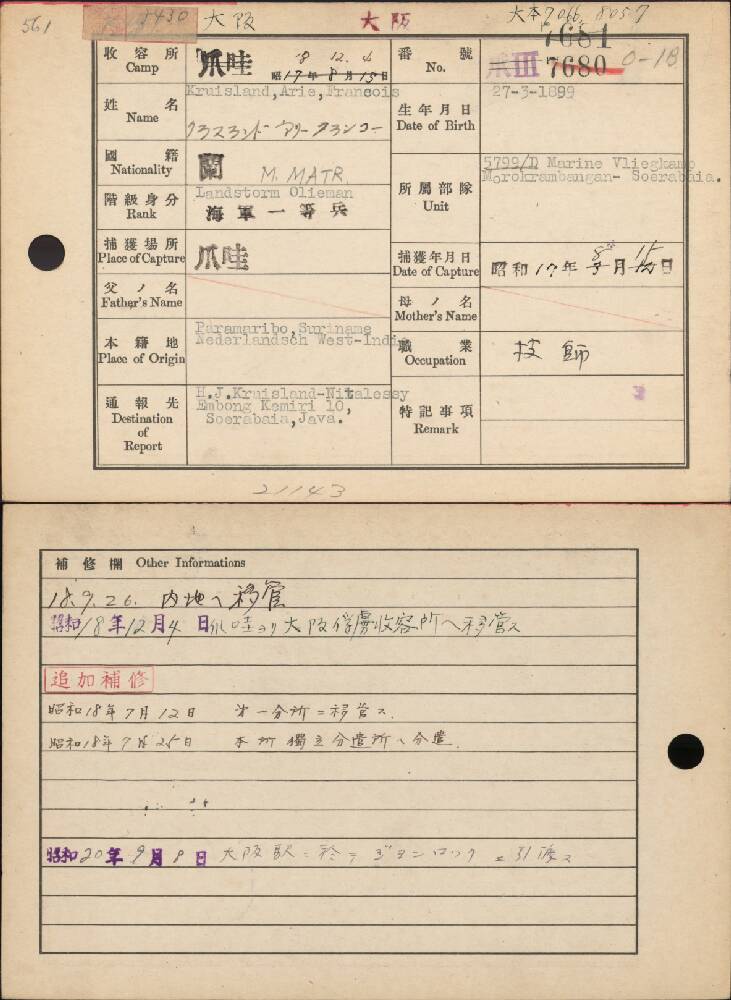 561
7430
大阪
大阪
大本7066, 8057
收容所 Camp
爪哇
18 12. 4
昭17年8月15日
番號 No.
爪III
7681
7680
0-18
姓名 Name
Kruisland,Arie,Francois
クラスランド アリー フランコー
生年月日 Date of Birth
27-3-1899
國籍 Nationality
蘭
M. MATR.
階級身分 Rank
Landstorm Olieman
海軍一等兵
所屬部隊 Unit
5799/D Marine Vliegkamp
Morokrambangan- Soerabaia.
捕獲場所 Place of Capture
爪哇
捕獲年月日 Date of Capture
昭和17年8月15日
父ノ名 Father's Name
母ノ名 Mother's Name
本籍地 Place of Origin
Paramaribo,Suriname
Nederlandsch West-Indi
職業 Occupation
技師
通報先 Destination of Report
H.J.Kruisland-Nitalessy
Embong Kemiri 10,
Soerabaia,Java.
特記事項 Remark
21143
補修欄 Other Informations
18.9.26. 内地へ移管
昭和18年12月4日爪哇ヨリ大阪俘虜收容所ヘ移管ス
追加補修
昭和18年7月12日 第一分所ニ移管ス.
昭和18年9月25日 本所獨立分遣所ヘ分遣.
昭和20年9月8日 大阪駅ニ於テジヨンロックニ引渡ス